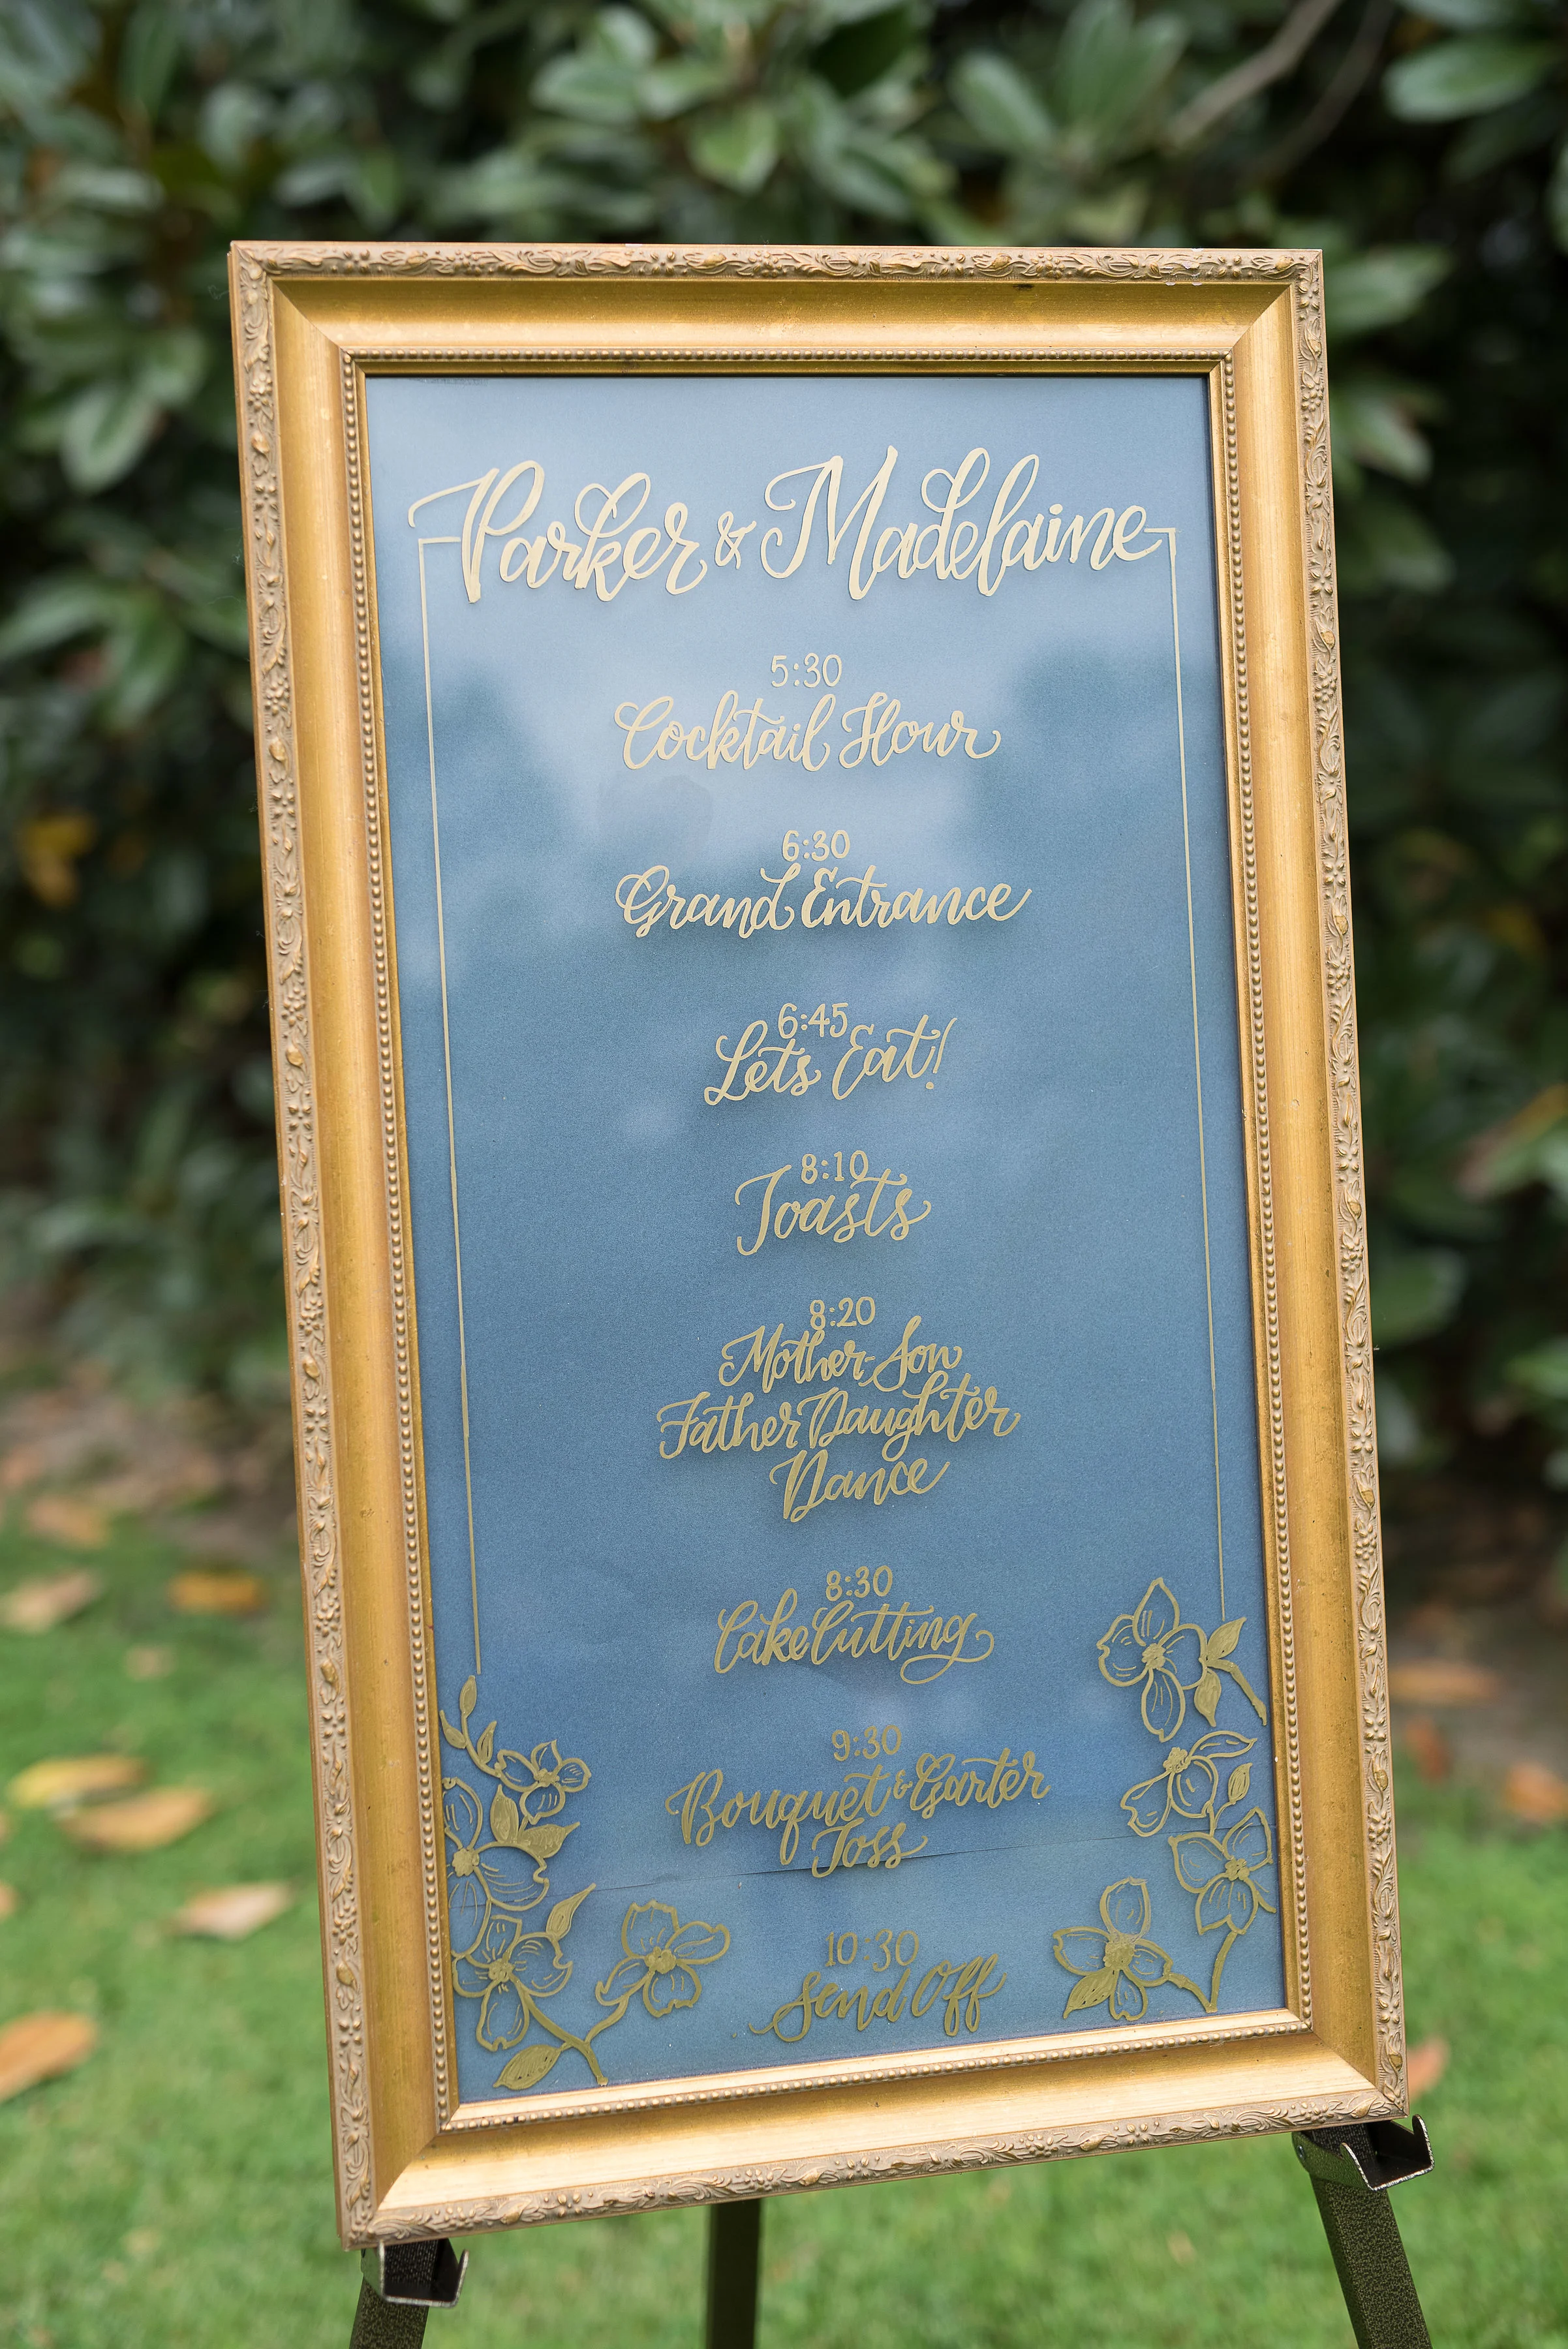 Parker & Madelaine
5:30
Cocktail Hour
6:30
Grand Entrance
6:45
Lets Eat!
8:10
Toasts
8:20
Mother-Son
Father Daughter
Dance
8:30
Cake Cutting
9:30
Bouquet & Garter
Toss
10:30
Send Off